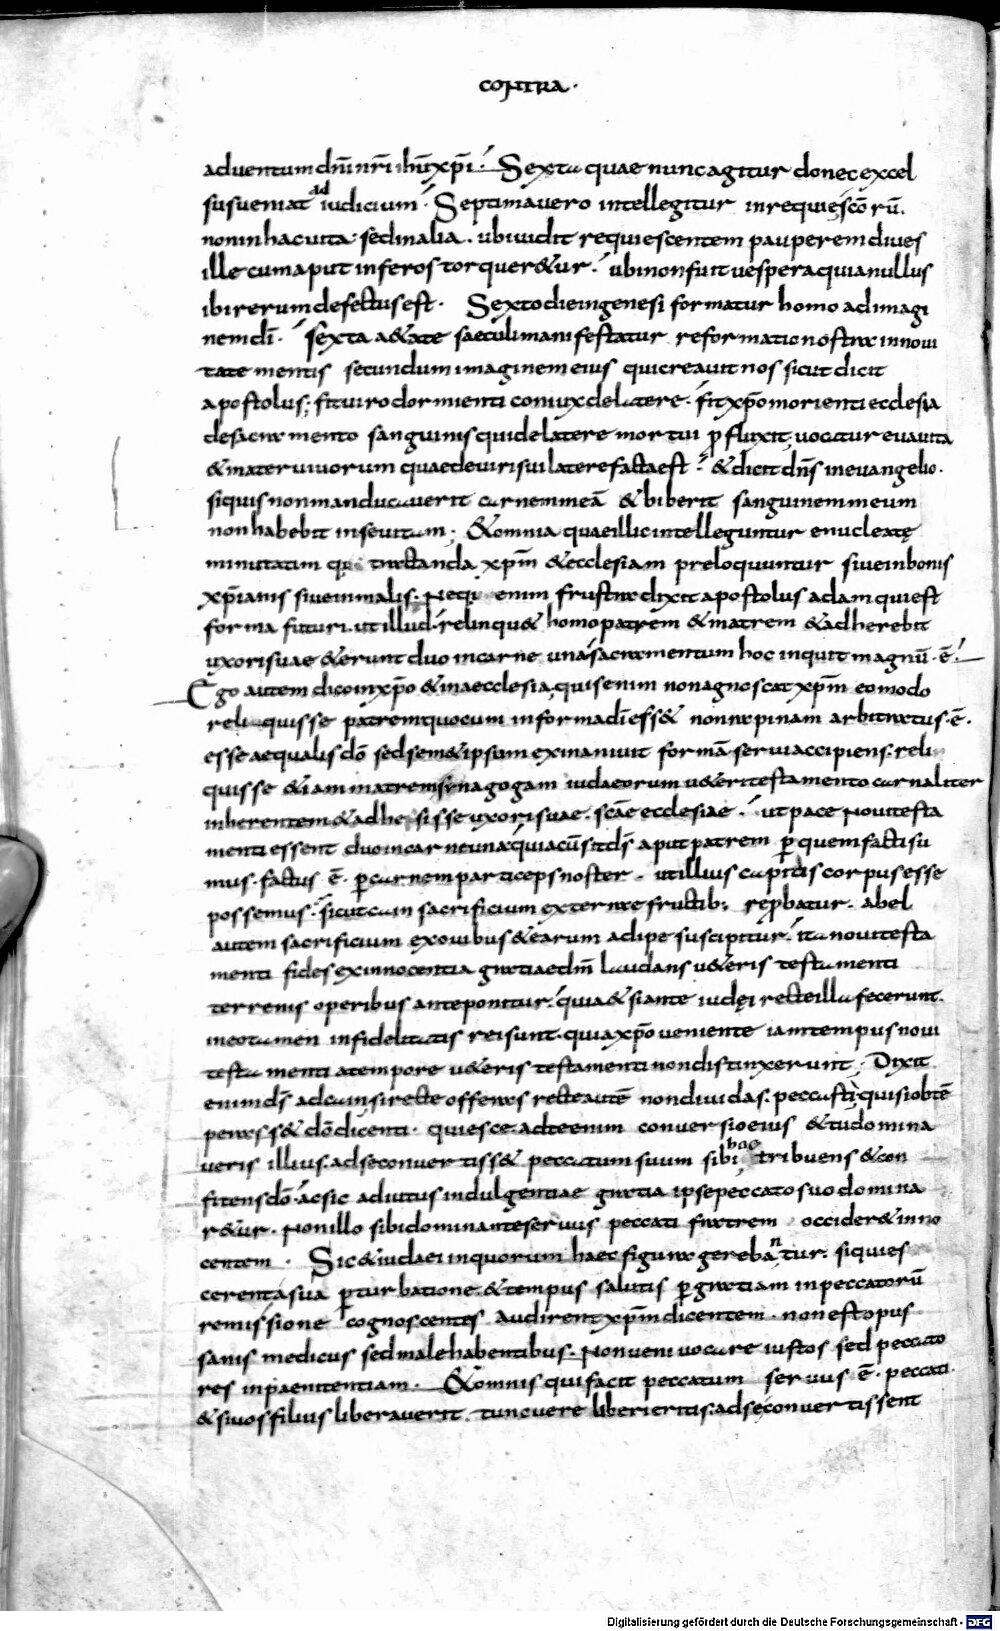 CONTRA ·
adventum dn̄i nr̄i ihū xp̄i · Sexta quae nunc agitur donec excel
sus veniat ad iudicium · Septima vero intellegitur in requie sc̄orū.
non in hac vita sed in alia. ubi vidit requiescentem pauperem dives
ille cum aput inferos torquer&ur. ubi non fuit vespera quia nullus
ibi rerum defectus est. Sexto die in genesi formatur homo ad imagi
nem dī. sexta a&ate saeculi manifestatur reformatio nostra in novi
tate mentis secundum imaginem eius qui creavit nos sicut dicit
apostolus; fit viro dormienti coniux de latere. fit xp̄o morienti ecclesia
de sacramento sanguinis qui de latere mortui ꝓfluxit, vocatur eva vita
& mater vivorum quae de viri sui latere facta est & dicit dn̄s in evangelio.
siquis non manducaverit carnem meā & biberit sanguinem meum
non habebit in se vitam; & omnia quae illic intelleguntur enucleatę
minutatim tractanda xp̄m & ecclesiam preloquuntur sive in bonis
xp̄ianis sive in malis. Neq; enim frustra dixit apostolus adam qui est
forma futuri. ut illud relinqu& homo patrem & matrem & adherebit
uxori suae & erunt duo in carne una sacramentum hoc inquit magnū ē.
Ego autem dico in xp̄o & in aecclesia, quis enim non agnoscat xp̄m eo modo
reliquisse patrem qui cum in forma dī ess& non rapinam arbitratus ē.
esse aequalis dō sed sem&ipsum exinanivit formā servi accipiens. reli
quisse &iam matrem synagogam iudaeorum v&eri testamento carnaliter
inherentem & adhesisse uxori suae. scāe ecclesiae. ut pace novi testa
menti essent duo in carne una quia cū sit dī aput patrem ꝑ quem facti su
mus. factus ē. ꝑ carnem particeps noster. ut illius capitis corpus esse
possemus. sicut cain sacrificium ex terrae fructib; reꝓbatur. abel
autem sacrificium ex ovibus & earum adipe suscipitur. ita novi testa
menti fides ex innocentia gratiae dn̄m laudans v&eris testamenti
terrenis operibus anteponitur. quia & si ante iudęi recte illa fecerunt.
in eo tamen infidelitatis rei sunt. quia xp̄o veniente iam tempus novi
testamenti a tempore v&eris testamenti non distinxerunt; Dixit
enim dī ad cain si recte offeras recte autē non dividas. peccasti; qui si obtē
perass& dō dicenti. quiesce. ad te enim conversio eius & tu domina
veris illius. ad se convertiss& peccatum suum sibi hoc tribuens & con
fitens dō. ac sic adiutus indulgentiae gratia ipse peccato suo domina
r&ur. Non illo sibi dominante servus peccati fratrem occider& inno
centem. Sic & iudaei in quorum haec figura gerebantur. si quies
cerent a sua ꝑturbatione. & tempus salutis ꝑ gratiam in peccatorū
remissione cognoscentes audirent xp̄m dicentem. non est opus
sanis medicus sed male habentibus. Non veni vocare iustos sed peccato
res in paenitentiam. & omnis qui facit peccatum servus ē. peccati.
& si vos filius liberaverit. tunc vere liberi eritis. ad se convertissent
Digitalisierung gefördert durch die Deutsche Forschungsgemeinschaft - DFG